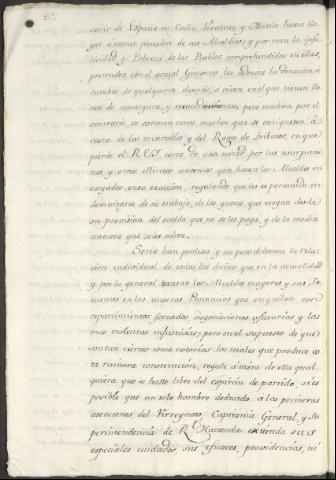 venir de España en Cadiz, Veracruz, y México hasta lle-
gar á tomar posesion de sus Alcaldías; y por otra la infe-
licidad y Pobreza de los Pueblos comprehendidos en ellas,
pretenden con el actual Govierno les conceda la
cambio de qualquiera destino, ó viven en el que tienen lle-
nos de amargura, y remordimientos; pero cambia por el
contrario, se conocen otros muchos que se enriquecen á
costa de los miserables y del Ramo de Tributos, en que
pierde el REY cerca de una mitad por las usurpacio-
nes, y otros ilicitos convenios que hacen los Alcaldes en-
cargados en su exaccion, regulando que les es permitido in-
demnizarse de su trabajo, de los gastos que erogan desde
su provision del sueldo que no se les paga, y de la media
annata que se les cobra.
Seria bien prolixa y no poco dolorosa la rela-
cion individual de todos los daños que en la actualidad
y por lo general causan los Alcaldes mayores y sus Te-
nientes en las miseras Provincias que aniquilan con
repartimientos forzados, negociaciones usurarias y las
mas violentas injusticias; pero en el supuesto de que
son tan ciertos como notorios los males que produce es-
ta ruinosa constitucion, regule á vista de ella qual-
quiera que se halle libre del espiritu de partido, si es
posible que un solo hombre dedicado á las primeras
atenciones del Virreynato, Capitania General, y Su-
perintendencia de Rl. Hacienda extienda sus
especiales cuidados, sus eficaces providencias, ni